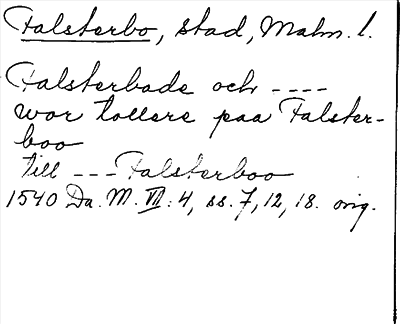 Falsterbo, stad, Malm. l.
Falsterbode och ----
wor tollere paa Falster-
boo
till --- Falsterboo
1540 Da. M. VI: 4, ss. 7, 12, 18. orig.